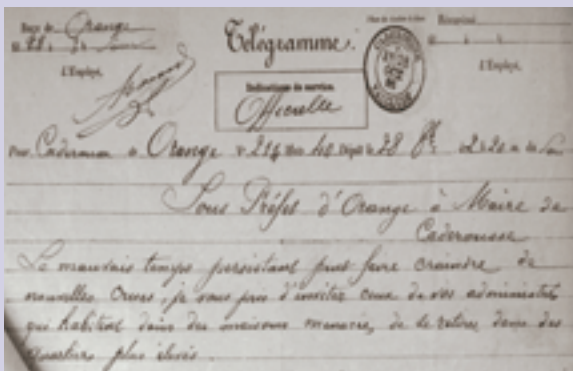 Reçu de Orange
Télégramme.
L'Employé,
L'Employé,
Indications de service.
Officielle
Pour Caderousse de Orange N° 214 Mots 40 Dépôt le 28 à 2h20 du Soir
Sous Préfet d'Orange à Maire de
Caderousse
Le mauvais temps persistant peut faire craindre de
nouvelles Crues, je vous prie d'inviter ceux de vos administrés
qui habitent dans des maisons menacées, de se retirer dans des
quartiers plus élevés.